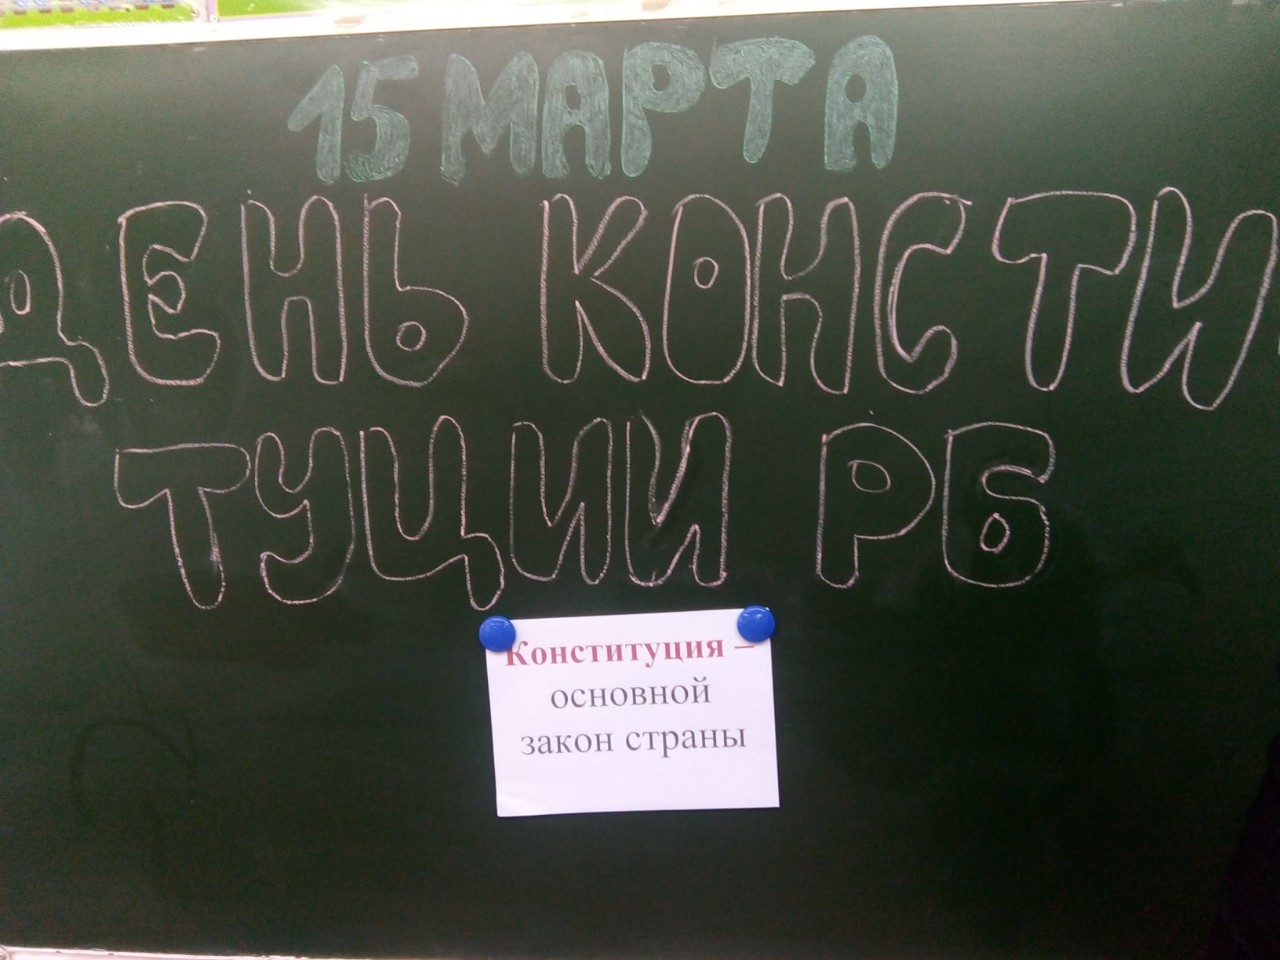 15 МАРТА
ДЕНЬ КОНСТИ
ТУЦИИ РБ
Конституция –
основной
закон страны